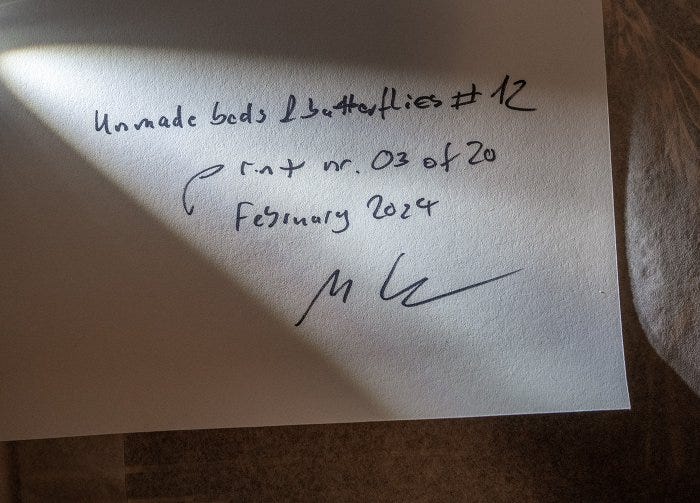 Unmade beds & butterflies #12
Print nr. 03 of 20
February 2024